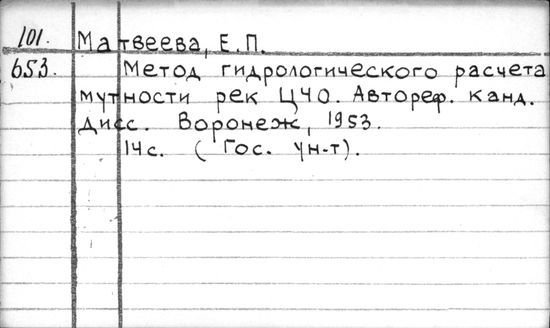 101. Матвеева, Е.П.
653. Метод гидрологического расчета
мутности рек ЦЧО. Автореф. канд.
дисс. Воронеж, 1953.
14с. (Гос. ун-т).